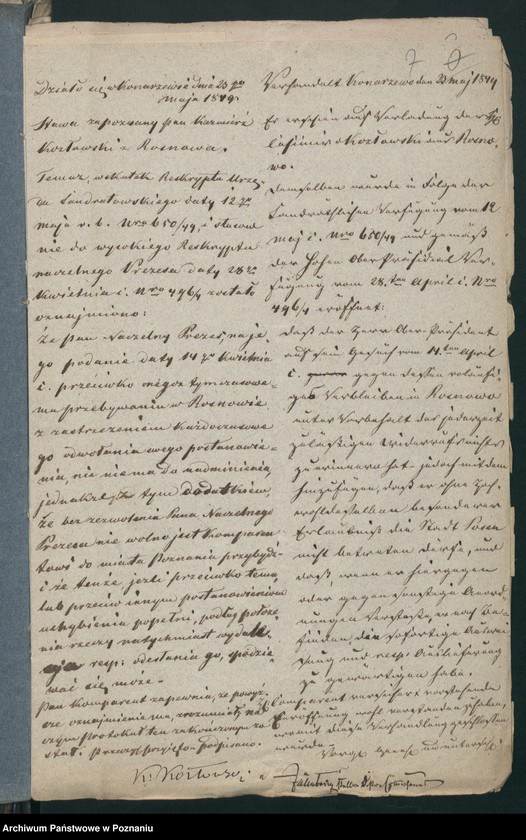 Działo się w Konarzewie dnia 23go
maja 1849.
Stawa zapozwany pan Kazimierz
Kozłowski z Rosnowa.
Temuż, w skutek Reskryptu Urzę-
du Landratowskiego daty 12go
maja r. b. Nro 650/49 i stosow
nie do wysokiego Reskryptu
naczelnego Prezesa daty 28go
Kwietnia c. Nro 496/4 zostało
oznajmiono:
że pan Naczelny Prezes, na je-
go podanie daty 14go Kwietnia
c. przeciwko niegoż tymczasowe-
mu przebywaniu w Rosnowie
z zastrzeżeniem każdoczasowe
go odwołania swego postanowie-
nia, nic niema do nadmienienia,
jednakże z tym dodatkiem,
że bez zezwolenia Pana Naczelnego
Prezesa nie wolno jest Komparen
towi do miasta Poznania przybydź
i że tenże, jeźli przeciwko temu
lub przeciw innym postanowieniom
uchybienia popełni, podług położe-
nia rzeczy natychmiast wydale
nia resp: odesłania go, spodzie-
wać się może.
Pan Komparent zapewnia, że powyż
sze oznajmienie ma, zrozumiał, na
czym protokół ten zakończony zo
stał. przeczyt. przyjęto podpisano.
K: Kozłowski
7
Verhandelt Konarzewo den 23 Maj 1849
Es erschien auf Vorladung der
Casimir v Kozłowski aus Rosno-
wo.
Demselben wurde in Folge der
Landräthlichen Verfügung vom 12
Maj c. Nro 650/49 und gemäß
der hohen Ober Präsidial Ver-
fügung vom 28ten April c. Nro
496/4 eröffnet:
daß der Herr Ober Präsident
auf sein Gesuch vom 14ten April
c. gegen dessen vorläufi-
ges Verbleiben in Rosnowo
unter Vorbehalt des jederzeit
zuläßigen Widerrufs nichts
zu erinnern hat, jedoch mit dem
hinzufügen, daß er ohne Hoch
desselben besondere
Erlaubniß die Stadt Posen
nicht betreten dürfe, und
daß, wenn er hiergegen
oder gegen sonstige Anord
nungen verstoße, er nach Be-
finden die sofortige Auswei
sung und resp: Auslieferung
zu gewärtigen habe.
Comparent versichert vorstehende
Eröffnung wohl verstanden zu haben,
womit diese Verhandlung geschlossen
wurde.
Vorg. genehm. unterschr.
Archiwum Państwowe w Poznaniu
szukajwarchiwach.gov.pl